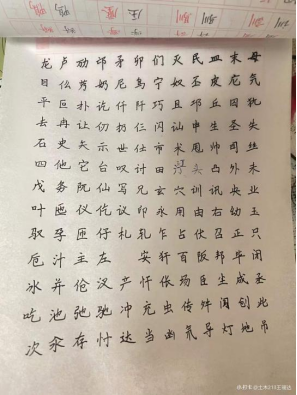 龙 卢 功 邙 矛 卯 们 灭 民 皿 末 母
目 仫 艿 奶 尼 鸟 宁 奴 丕 皮 疋 气
平 叵 扑 讫 仟 阡 巧 且 邛 丘 囚 犰
去 冉 让 仞 扔 仨 闪 讪 申 生 圣 失
石 史 矢 示 世 仕 市 术 甩 帅 司 丝
四 他 它 台 叹 讨 田 汀 头 凸 外 未
戊 务 阢 仙 写 兄 玄 穴 训 讯 央 业
叶 匜 仪 仡 议 印 永 用 由 右 幼 玉
驭 孕 匝 仔 札 轧 乍 占 仗 召 正 只
卮 汁 主 左 安 犴 百 阪 邦 毕 闭
冰 并 伦 汉 产 忏 伥 场 臣 尘 成 丞
吃 池 弛 驰 冲 充 虫 传 舛 闯 创 此
次 汆 存 忖 达 当 凼 氘 导 灯 地 吊